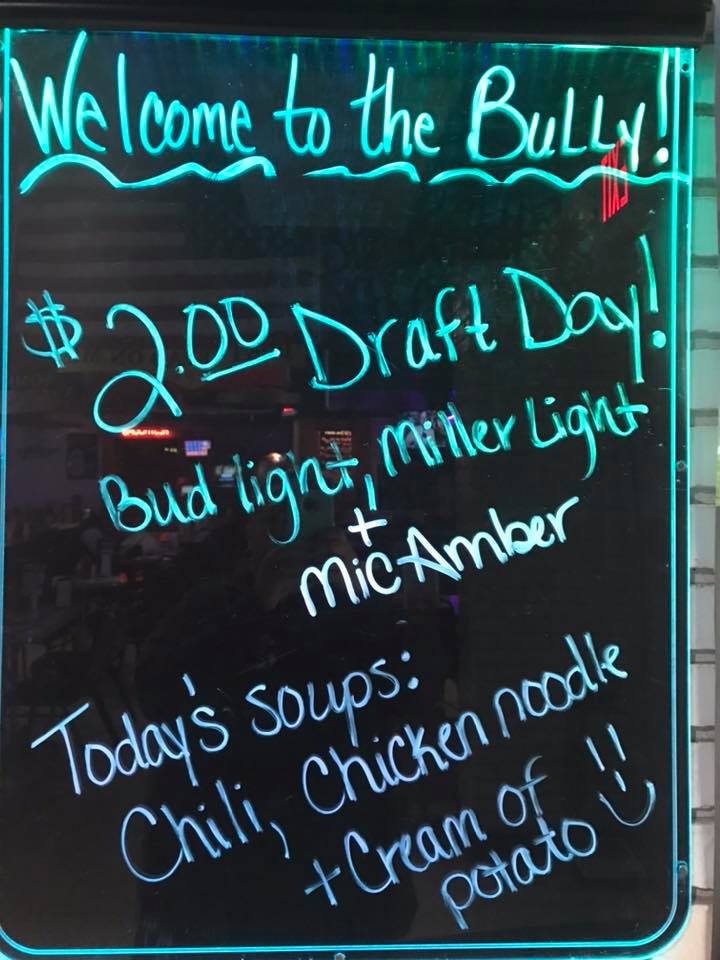 Welcome to the BuLLy!
EXIT
$2.00 Draft Day!
Bud light, Miller Light
+
Mic Amber
Today's soups:
Chili, Chicken noodle
+ Cream of
potato